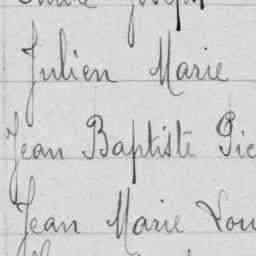 Joseph
Julien Marie
Jean Baptiste Pie
Jean Marie Lou